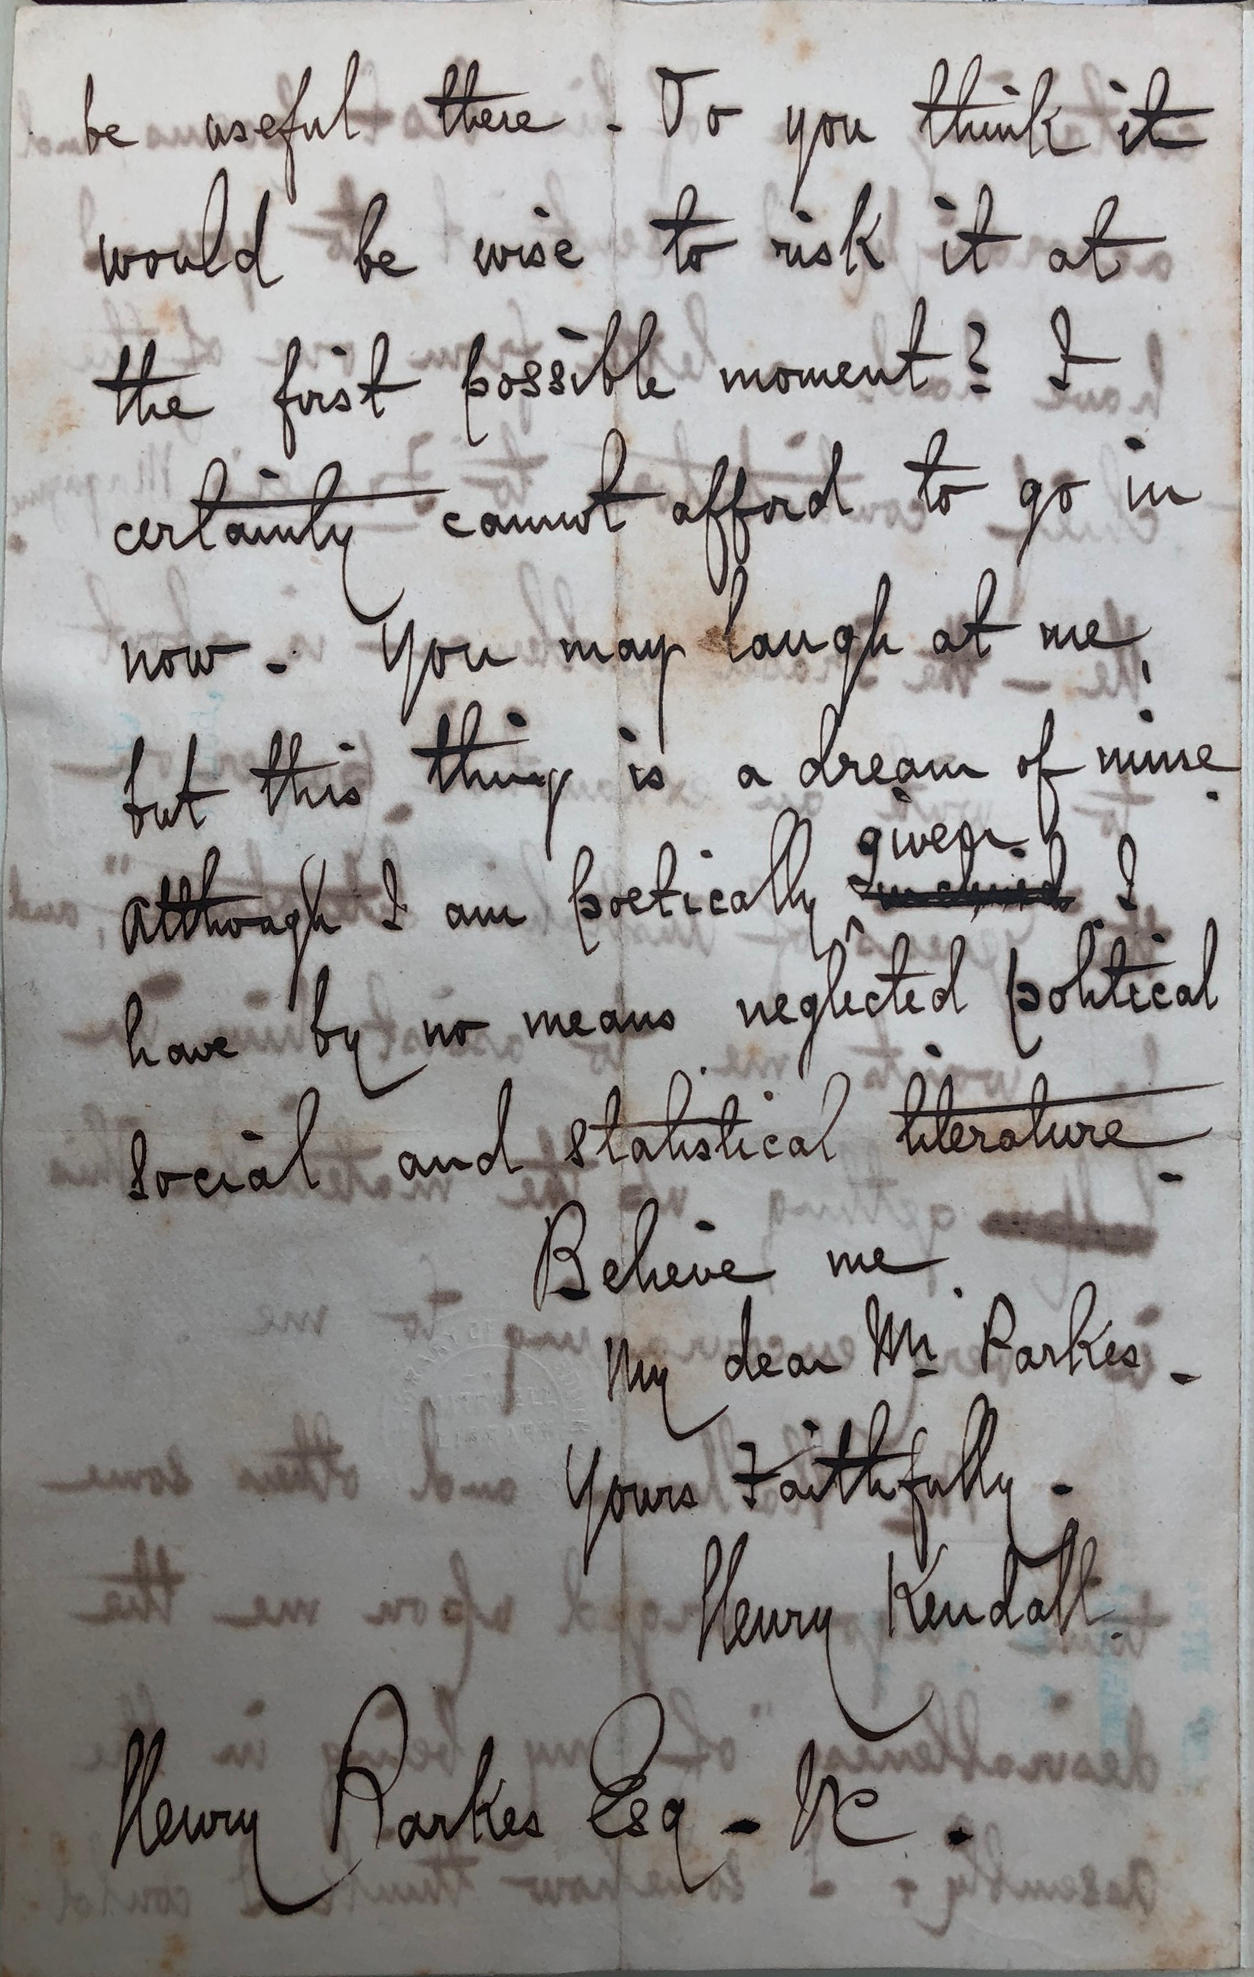 be useful there - Do you think it
would be wise to risk it at
the first possible moment? I
certainly cannot afford to go in
now - You may laugh at me,
but this thing is a dream of mine.
given
Although I am poetically inclined I
have by no means neglected political
social and statistical literature -
Believe me,
My dear Mr Parkes -
Yours Faithfully -
Henry Kendall.
Henry Parkes Esq - &c -